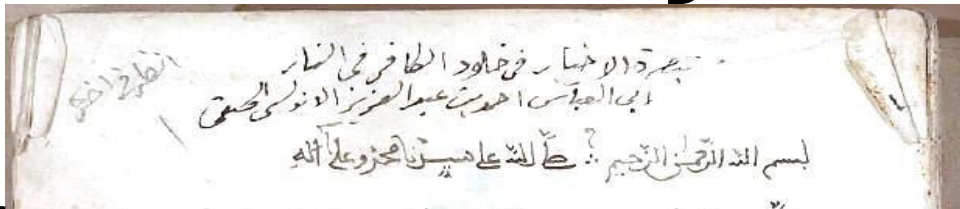 تبصرة الاخيار في خلود الكافر في النار
ابي العباس احمد بن عبد العزيز الاندلسي الحنفي
بسم الله الرحمن الرحيم صلى الله على سيدنا محمد وعلى آله